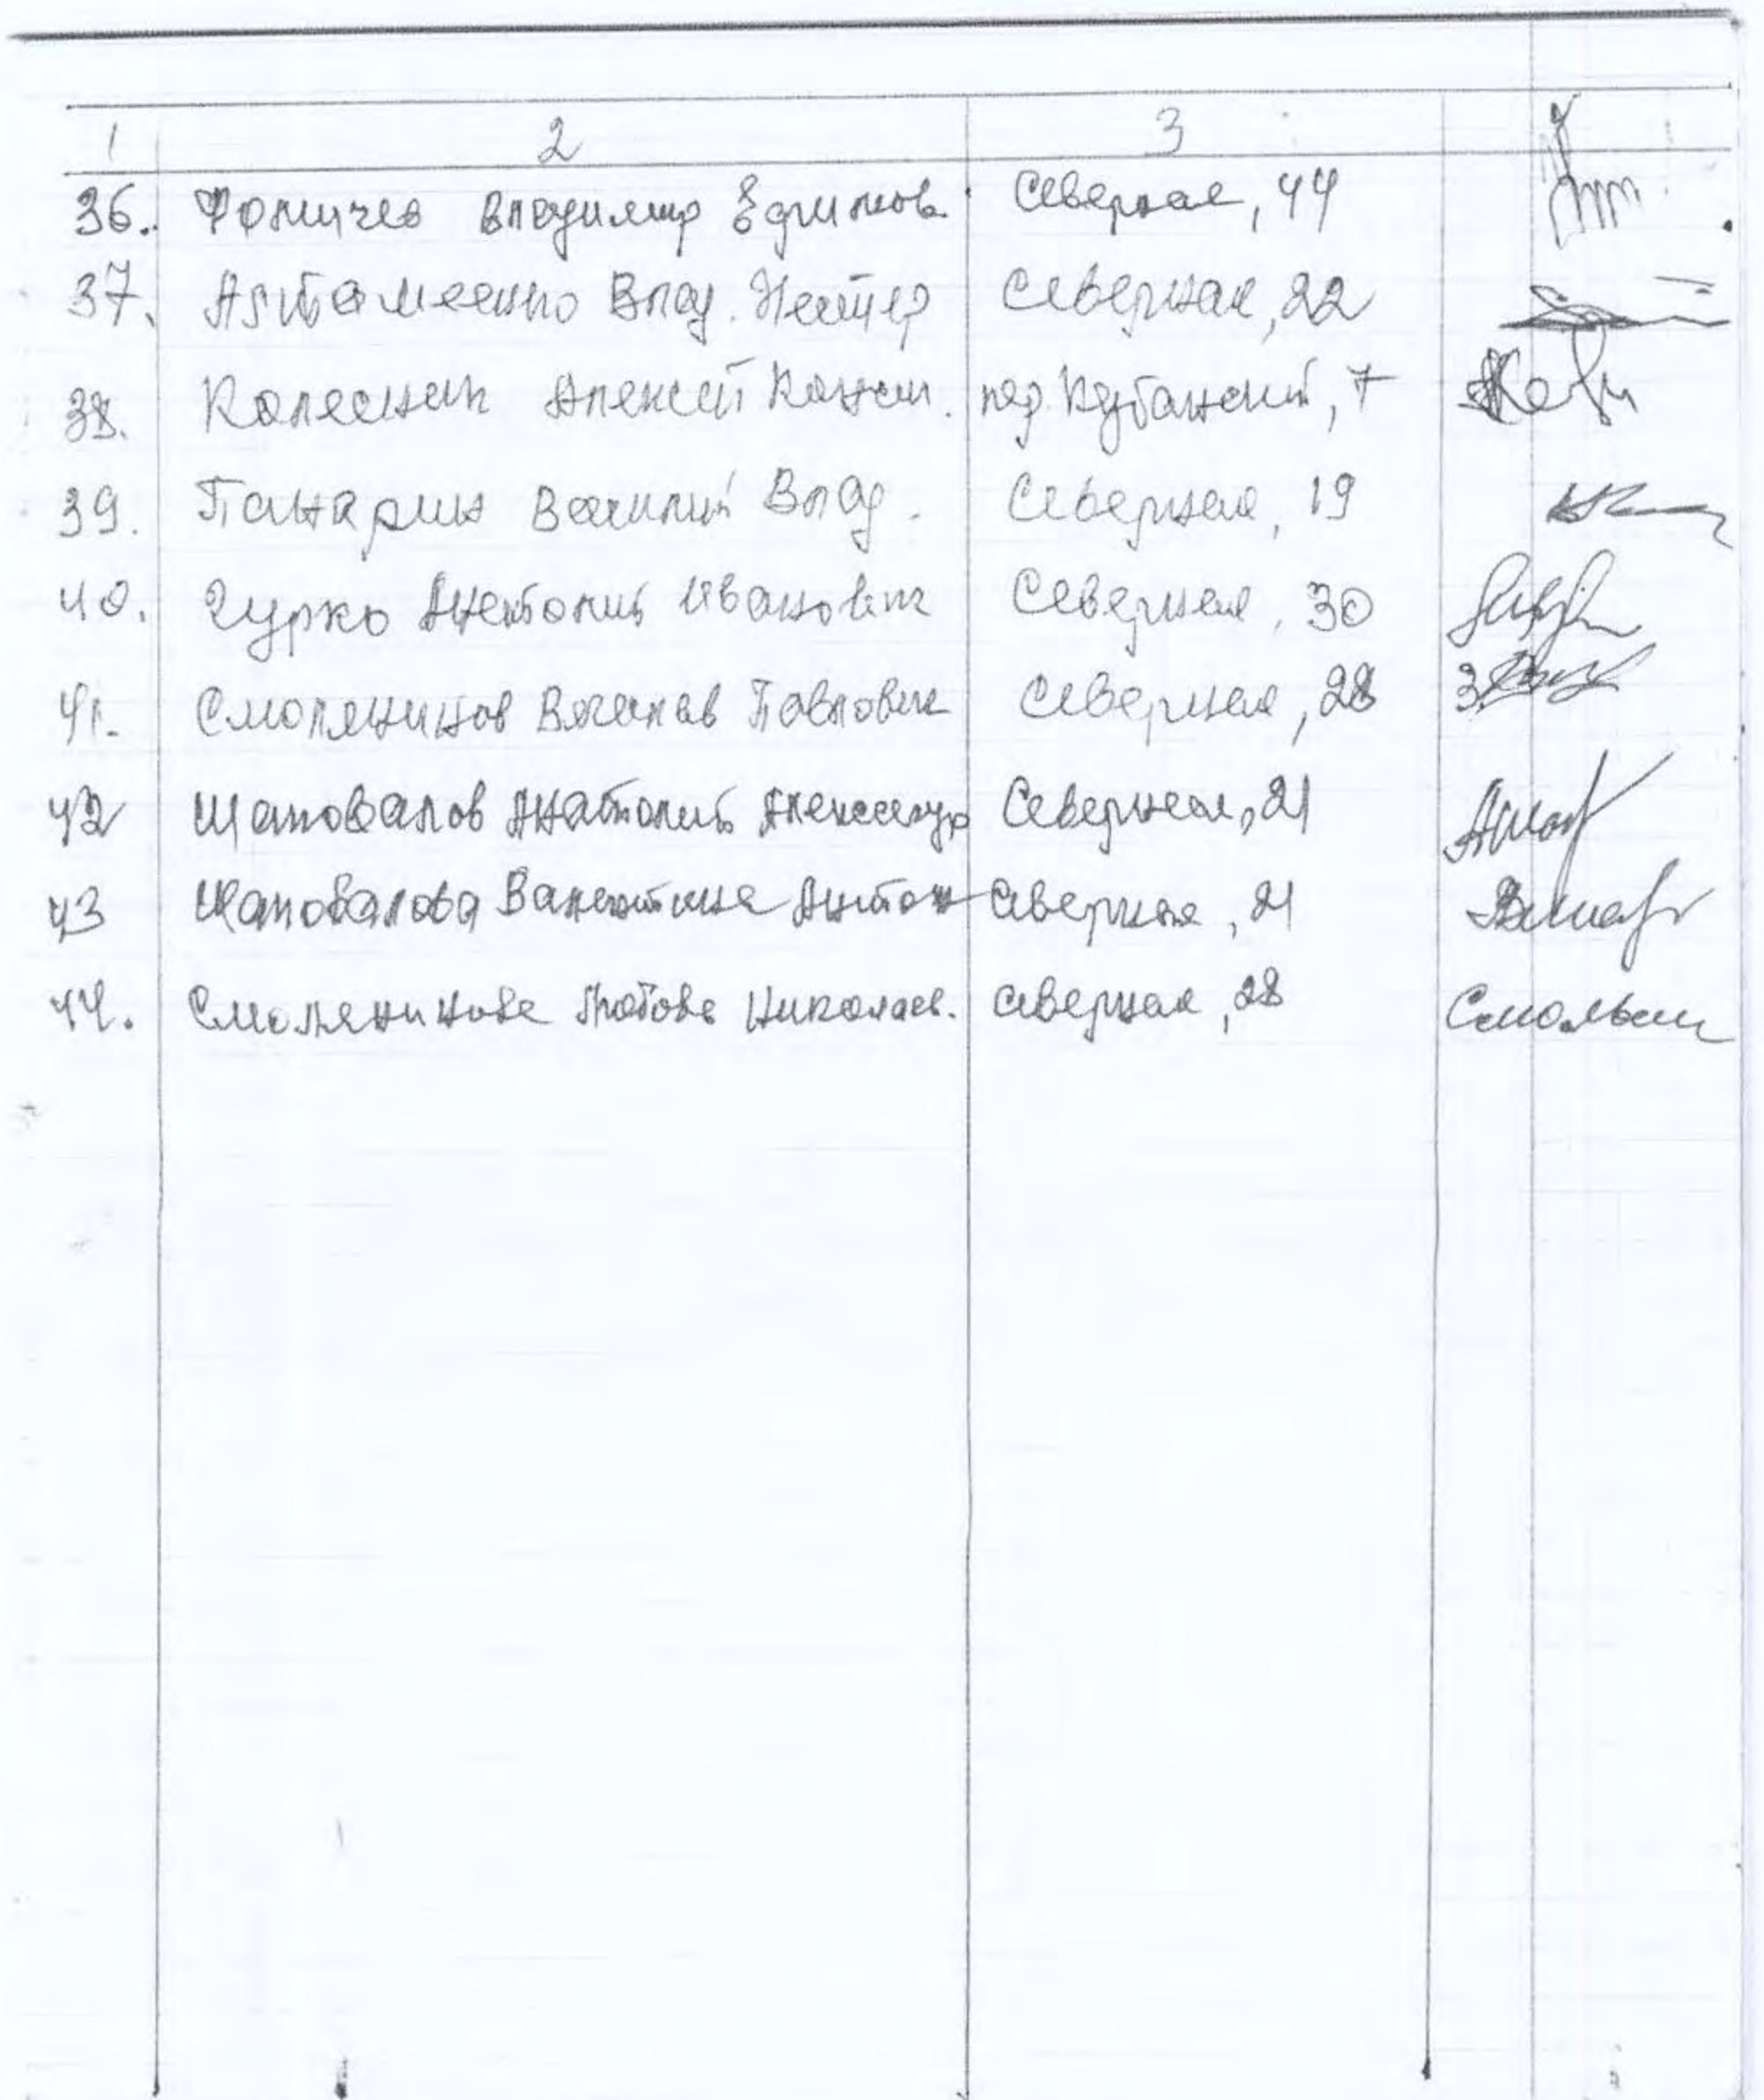 1 2 3
36. Фомичев Владимир Ефимов. Северная, 44
37. Артаменко Влад. Нестер Северная, 22
38. Колесник Алексей пер. Кубанский, 7
39. Панарин Василий Влад. Северная, 19
40. Гурко Анатолий Иванович Северная, 30
41. Смолянинов Вячеслав Павлович Северная, 28
42 Шаповалов Анатолий Александр Северная, 21
43 Шаповалова Валентина Антон Северная, 21
44. Смолянинова Любовь Николаев. Северная, 28 Смольян